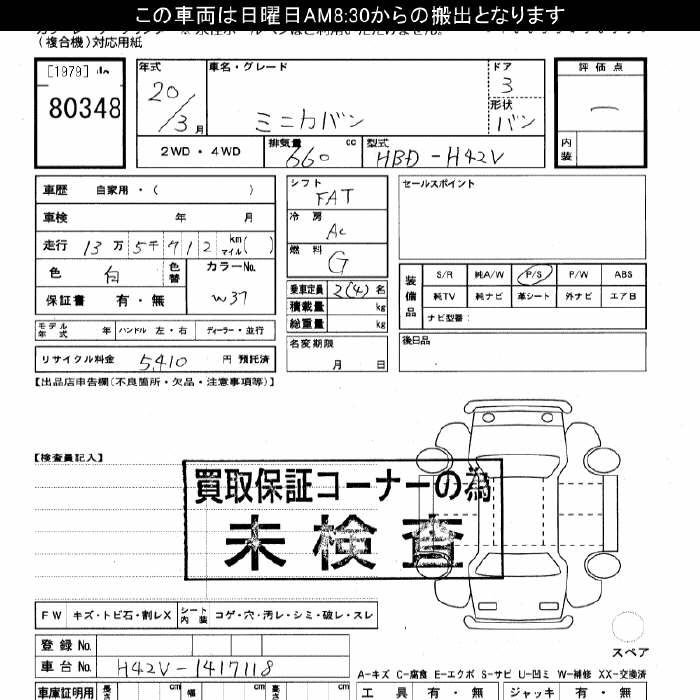 この車両は日曜日AM8:30からの搬出となります
(複合機)対応用紙
[1979]
80348
年式 車名・グレード ドア 評価点
20/3月 ミニカバン 3 一
形状 バン
2WD・4WD 排気量 660 cc 型式 HBD-H42V 内装
車歴 自家用・( )
車検 年 月
走行 13万5千912 km マイル( )
色 白 色替 カラーNo. W37
保証書 有・無
モデル年式 年 ハンドル 左・右 ディーラー・並行
リサイクル料金 5,410 円 預託済
シフト FAT
冷房 AC
燃料 G
乗車定員 2(4) 名
積載量 kg
総重量 kg
名変期限 月 日
セールスポイント
装備品 S/R 純A/W P/S P/W ABS
純TV 純ナビ 革シート 外ナビ エアB
ナビ型番:
後日品
【出品店申告欄(不良箇所・欠品・注意事項等)】
【検査員記入】
買取保証コーナーの為
未検査
FW キズ・トビ石・割レX シート内装 コゲ・穴・汚レ・シミ・破レ・スレ
スペア
登録No.
車台No. H42V-1417118
A-キズ C-腐食 E-エクボ S-サビ U-凹ミ W-補修 XX-交換済
車庫証明用 長さ cm 幅 cm 高さ cm 工具 有・無 ジャッキ 有・無